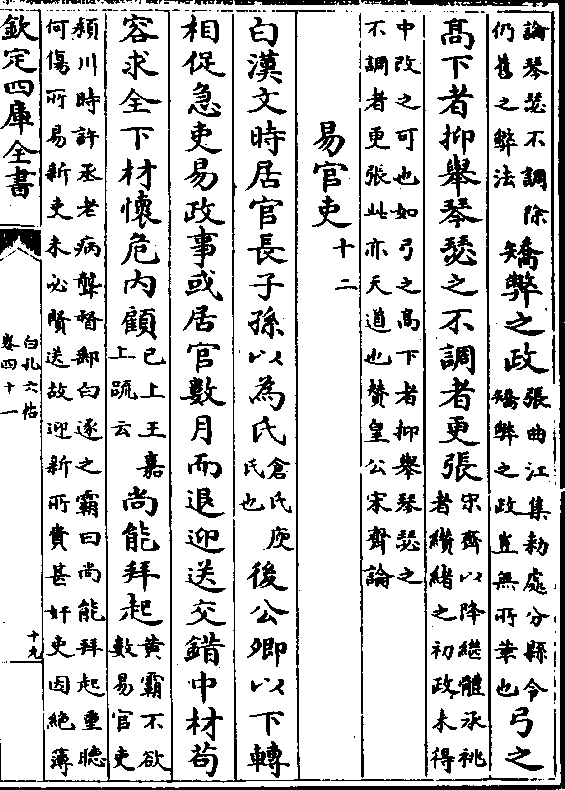 論琴瑟不調除
仍舊之弊法
矯弊之政
張曲江集勅處分縣令
矯弊之政豈無所革也
弓之
髙下者抑舉琴瑟之不調者更張
宋齊以降繼體承祧
者纘緒之初政未得
中改之可也如弓之髙下者抑舉琴瑟之
不調者更張此亦天道也賛皇公宋齊論
易官吏
十二
白漢文時居官長子孫以為氏
倉氏庾
氏也
後公卿以下轉
相促急吏易政事或居官數月而退迎送交錯中材苟
容求全下材懷危内顧
已上王嘉
上䟽云
尚能拜起
黄霸不欲
數易官吏
潁川時許丞老病聾督郵白逐之霸曰尚能拜起重聴
何傷所易新吏未必賢送故迎新所費甚奸吏因絶薄
欽定四庫全書
白孔六帖
卷四十一
十九